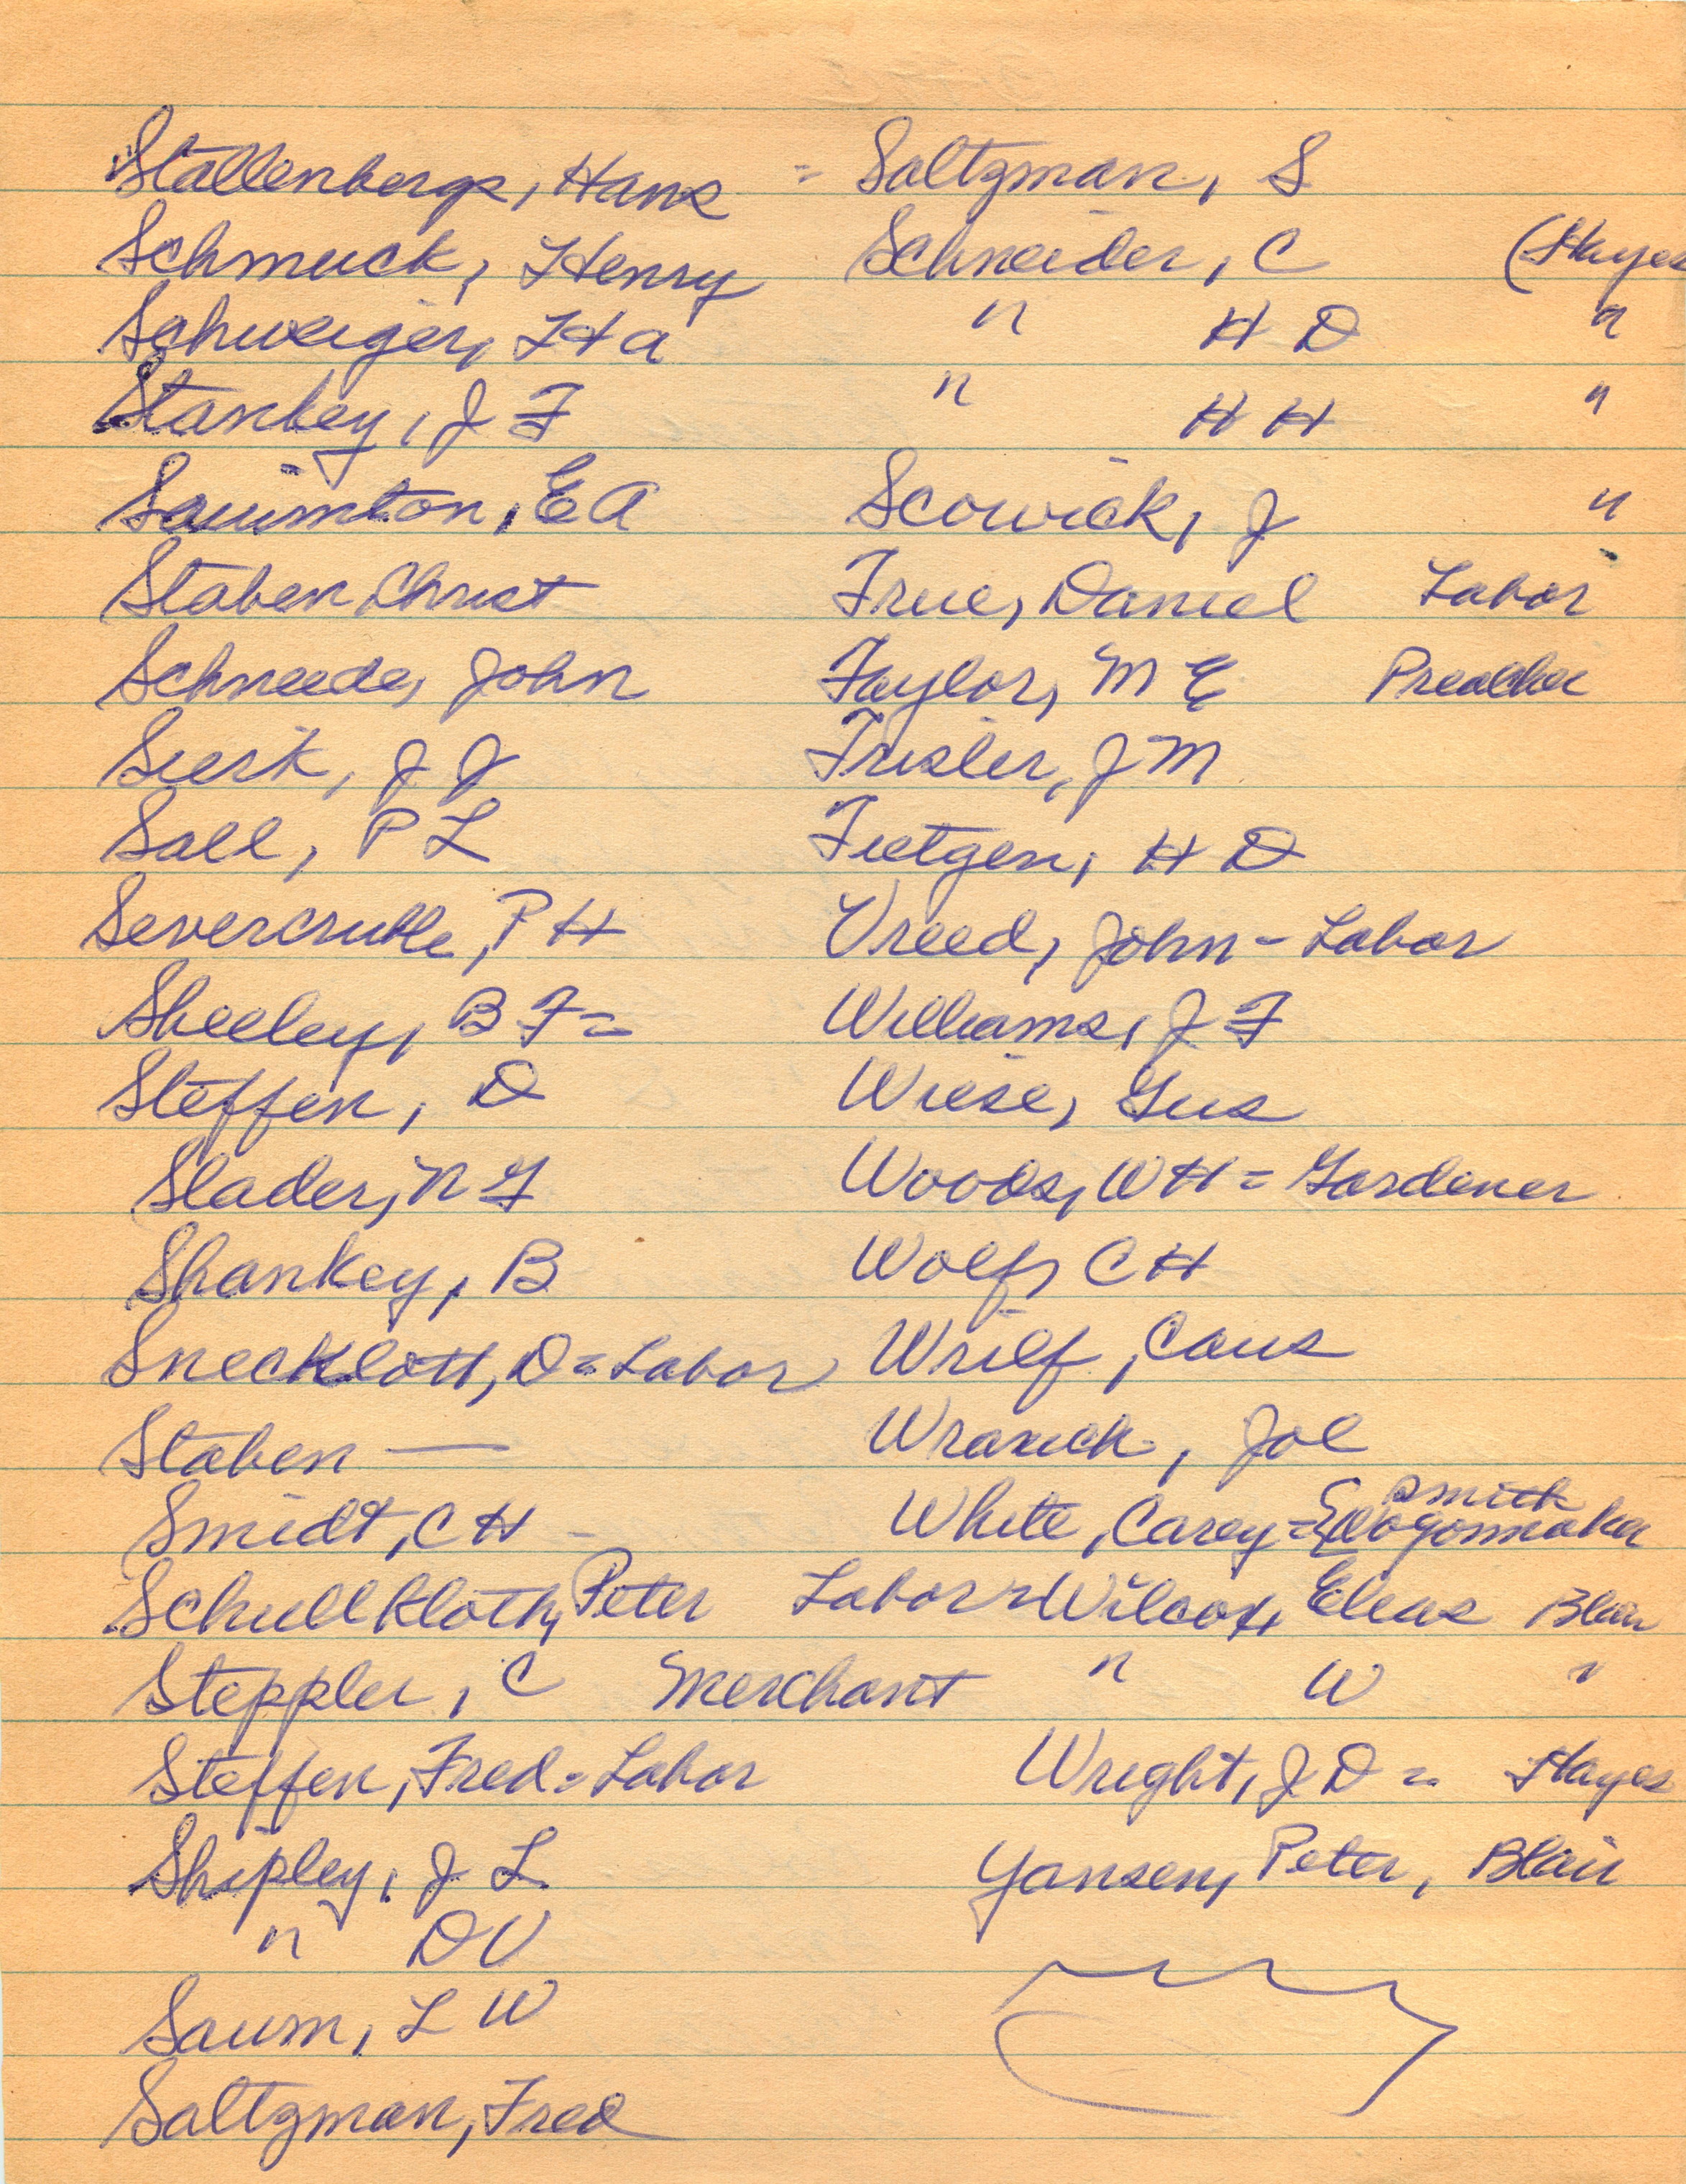 Stallenberge, Hans =
Schmuck, Henry
Schweiger, H a
Stankey, J F
Swimton, E A
Staben Christ
Schneede, John
Sierk, J J
Sall, P L
Severcrutte, P H
Sheeley, B F =
Steffen, D
Slader, N G
Shankey, B
Snecklott, D = Labor
Staben —
Smidt, C H -
Schullkloth, Peter Labor
Steppler, C Merchant
Steffen, Fred = Labor
Shipley, J L
" D V
Saum, L W
Saltzman, Fred
Saltzman, S
Schneider, C (Hayes
" H D "
" H H "
Scowick, J "
True, Daniel Labor
Taylor, M E Preacher
Trisler, J M
Tietgen, H D
Vreed, John - Labor
Williams, J F
Wiese, Gus
Woods, W H = Gardener
Wolf, C H
Wrilf, Caus
Wranich, Joe
White, Carey = Smith Wagonmaker
Wilcox, Elias Blair
" W "
Wright, J D = Hayes
Yansen, Peter, Blair